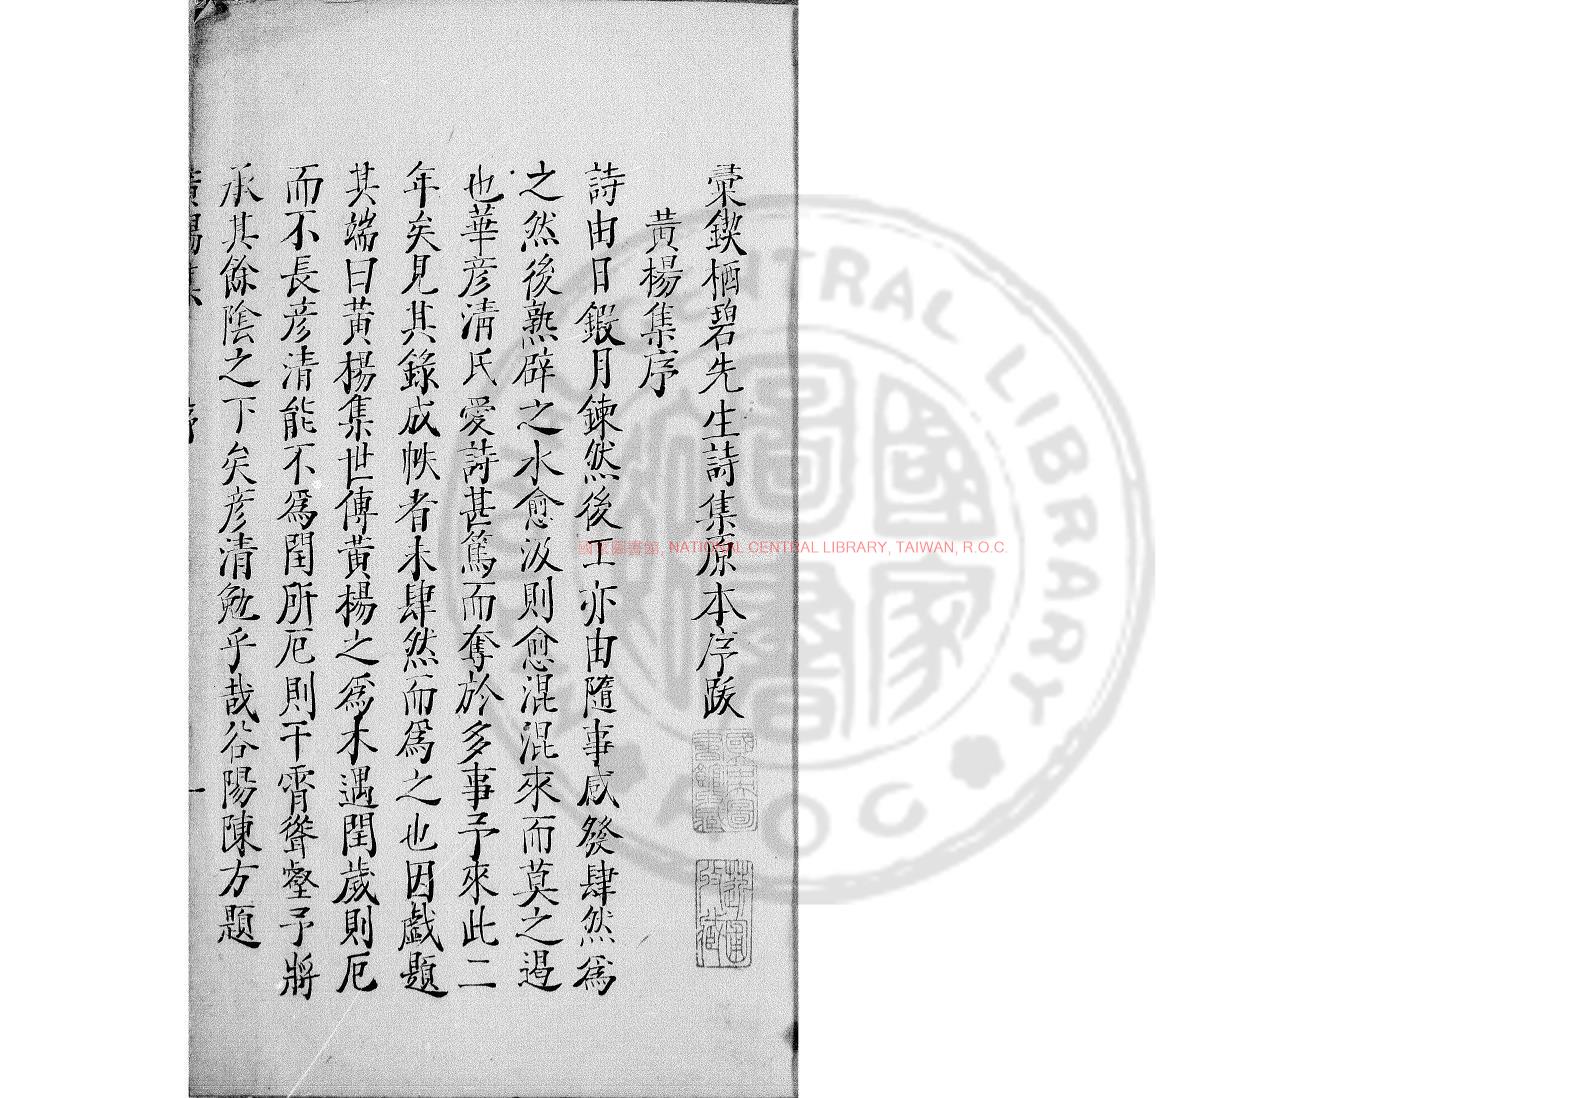 彚鍥栖碧先生詩集原本序跋
黃楊集序
詩由日鍛月鍊然後工亦由隨事感發肆然爲
之然後熟辟之水愈汲則愈混混來而莫之遏
也華彦清氏愛詩甚篤而奪於多事予來此二
年矣見其錄成帙者未肆然而爲之也因戯題
其端曰黃楊集世傳黃楊之爲木遇閏歲則厄
而不長彦清能不爲閏所厄則干霄聳壑予將
承其餘陰之下矣彦清勉乎哉谷陽陳方題
黃楊集 序 一
國家圖書館, NATIONAL CENTRAL LIBRARY, TAIWAN, R.O.C.
NATIONAL CENTRAL LIBRARY
R.O.C
國家圖書